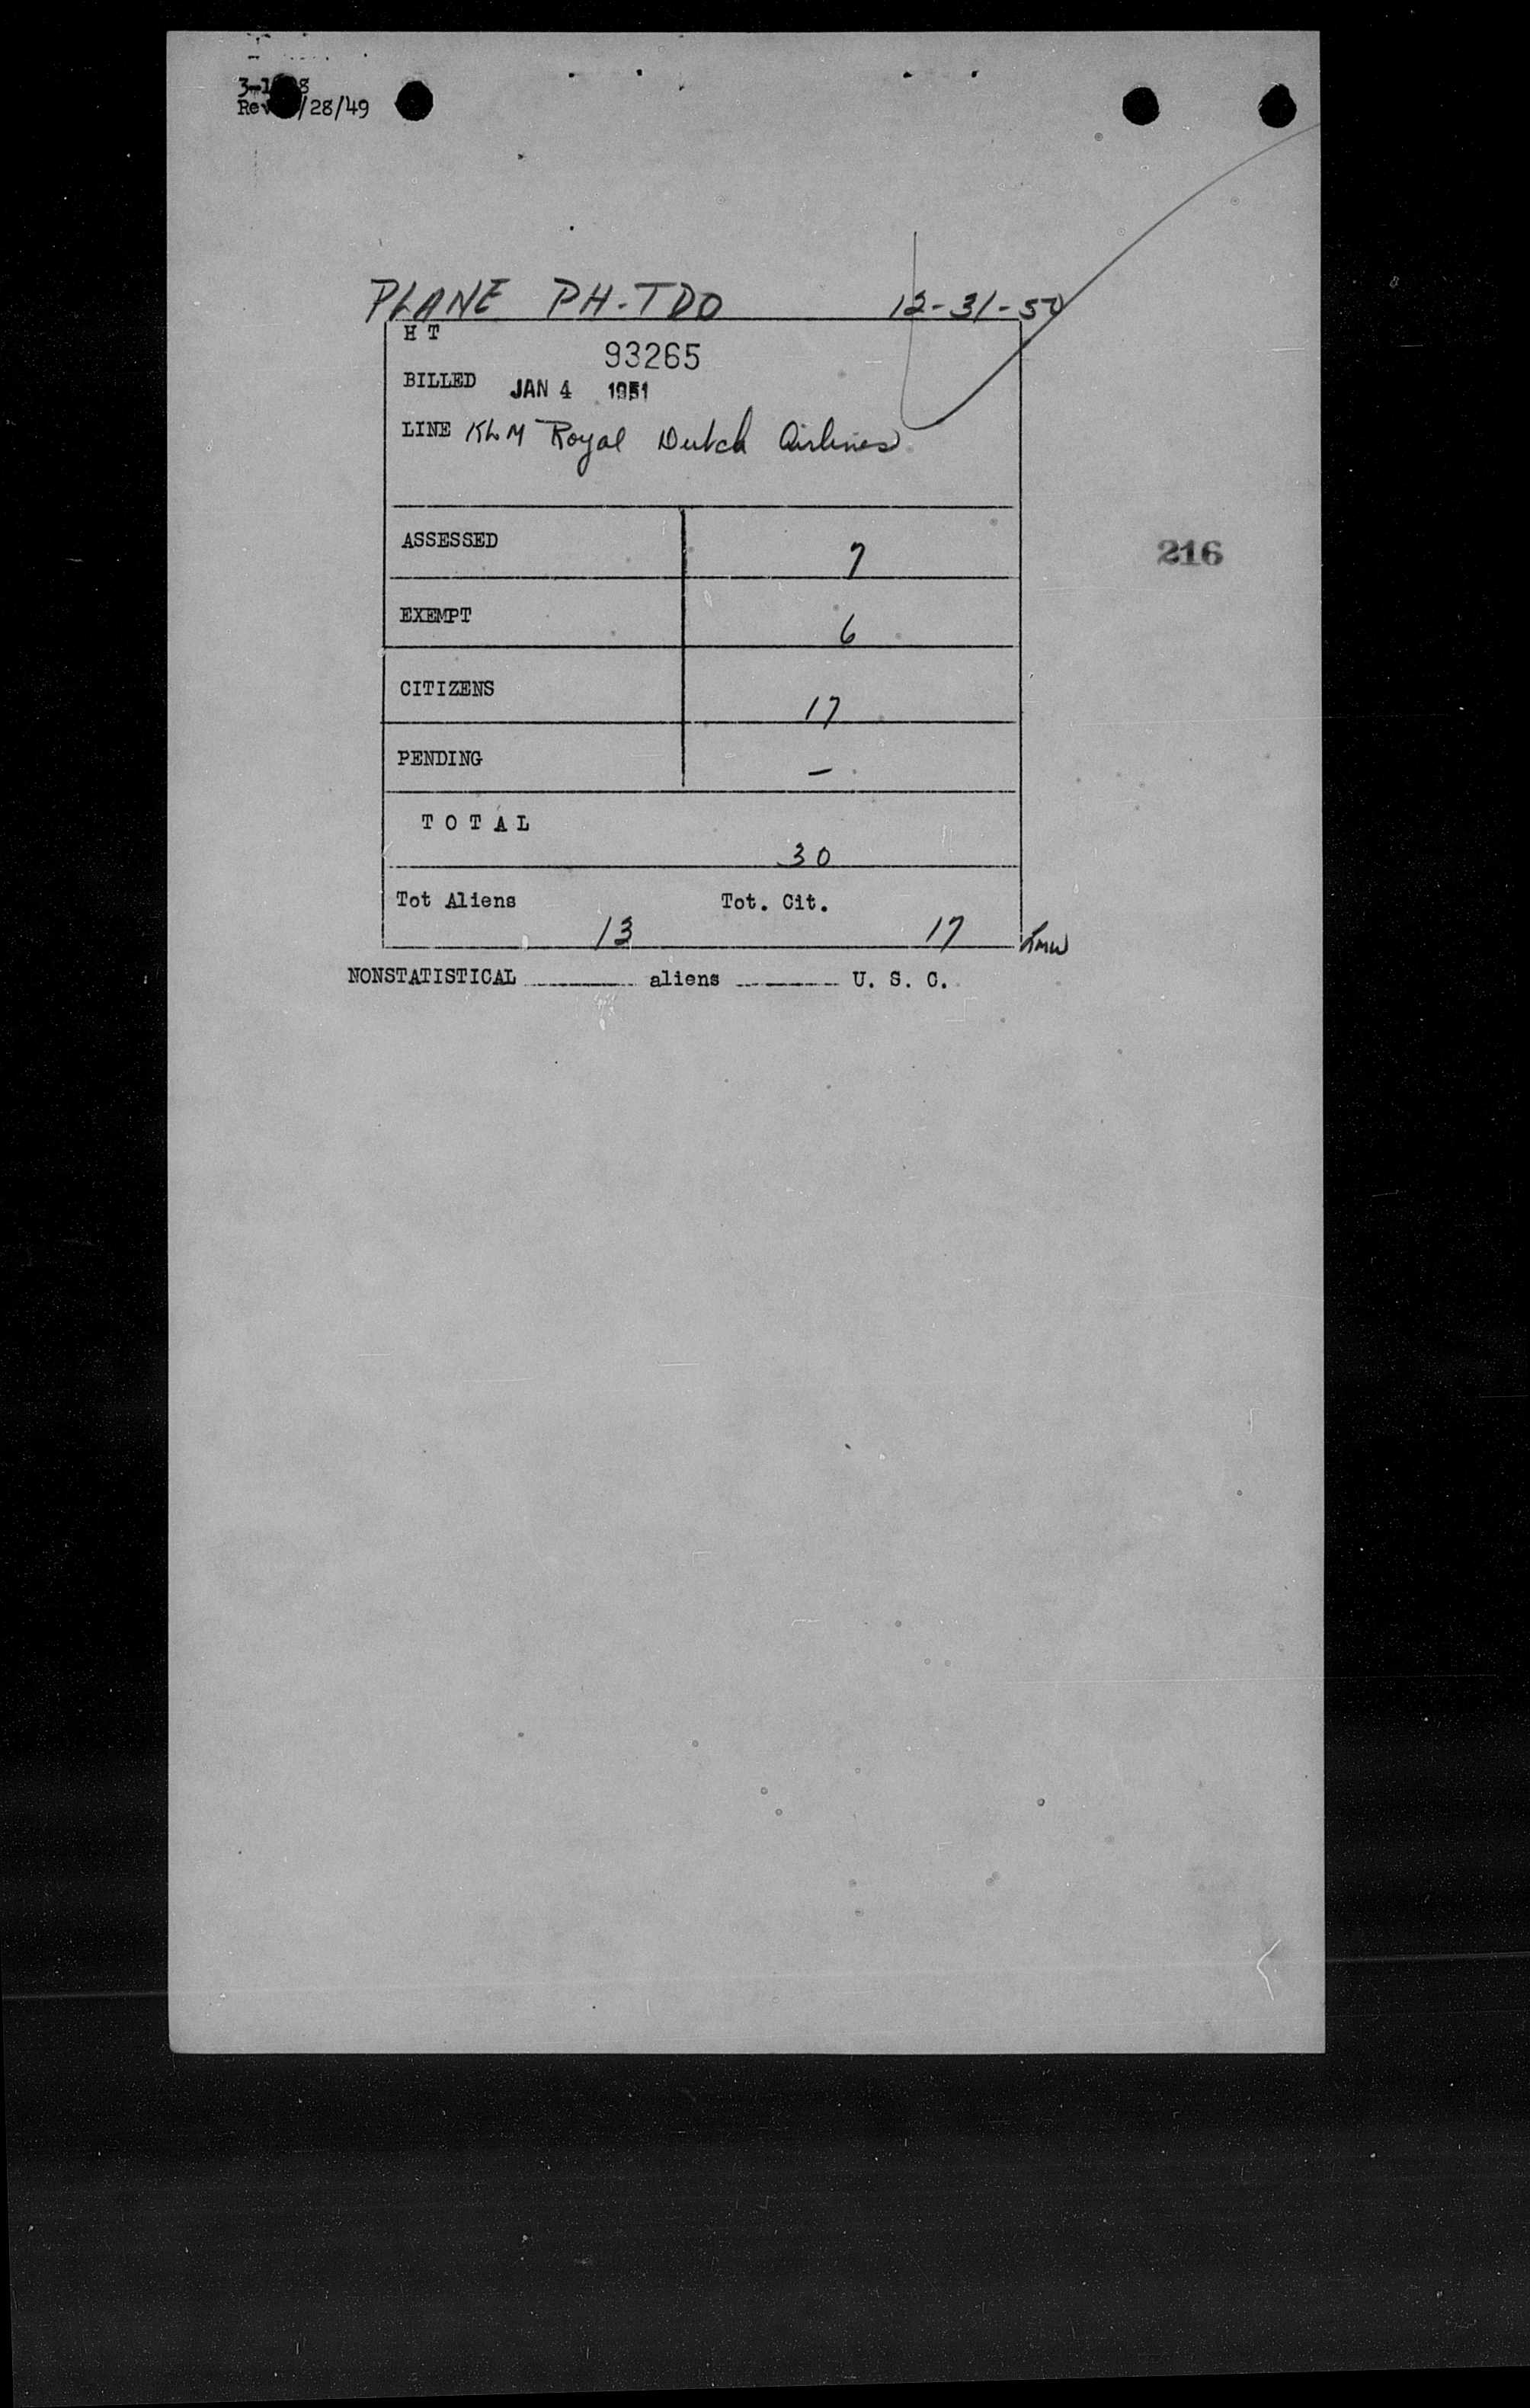 Rev /28/49
PLANE PH-TDO 12-31-50
H T
93265
BILLED JAN 4 1951
LINE KLM Royal Dutch Airlines
ASSESSED 7
216
EXEMPT 6
CITIZENS 17
PENDING -
T O T A L
30
Tot Aliens Tot. Cit.
13 17
NONSTATISTICAL aliens U. S. C.